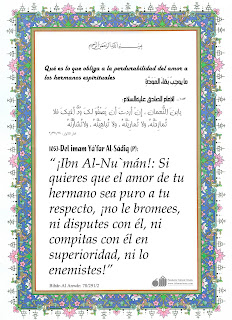 Qué es lo que obliga a la perdurabilidad del amor a
los hermanos espirituales
ما يوجب بقاء المودة
الإمام الصادق عليه السلام:
يابن النعمان، إن أردت أن يصفو لك ود أخيك فلا
تمازحنه، ولا تمارينه، ولا تباهينه، ولا تشارنه
Del imam Ya'far Al-Sadiq (P):
"¡Ibn Al-Nu`mán!: Si
quieres que el amor de tu
hermano sea puro a tu
respecto, ¡no le bromees,
ni disputes con él, ni
compitas con él en
superioridad, ni lo
enemistes!"
Bihâr Al-Anwâr: 78/291/2